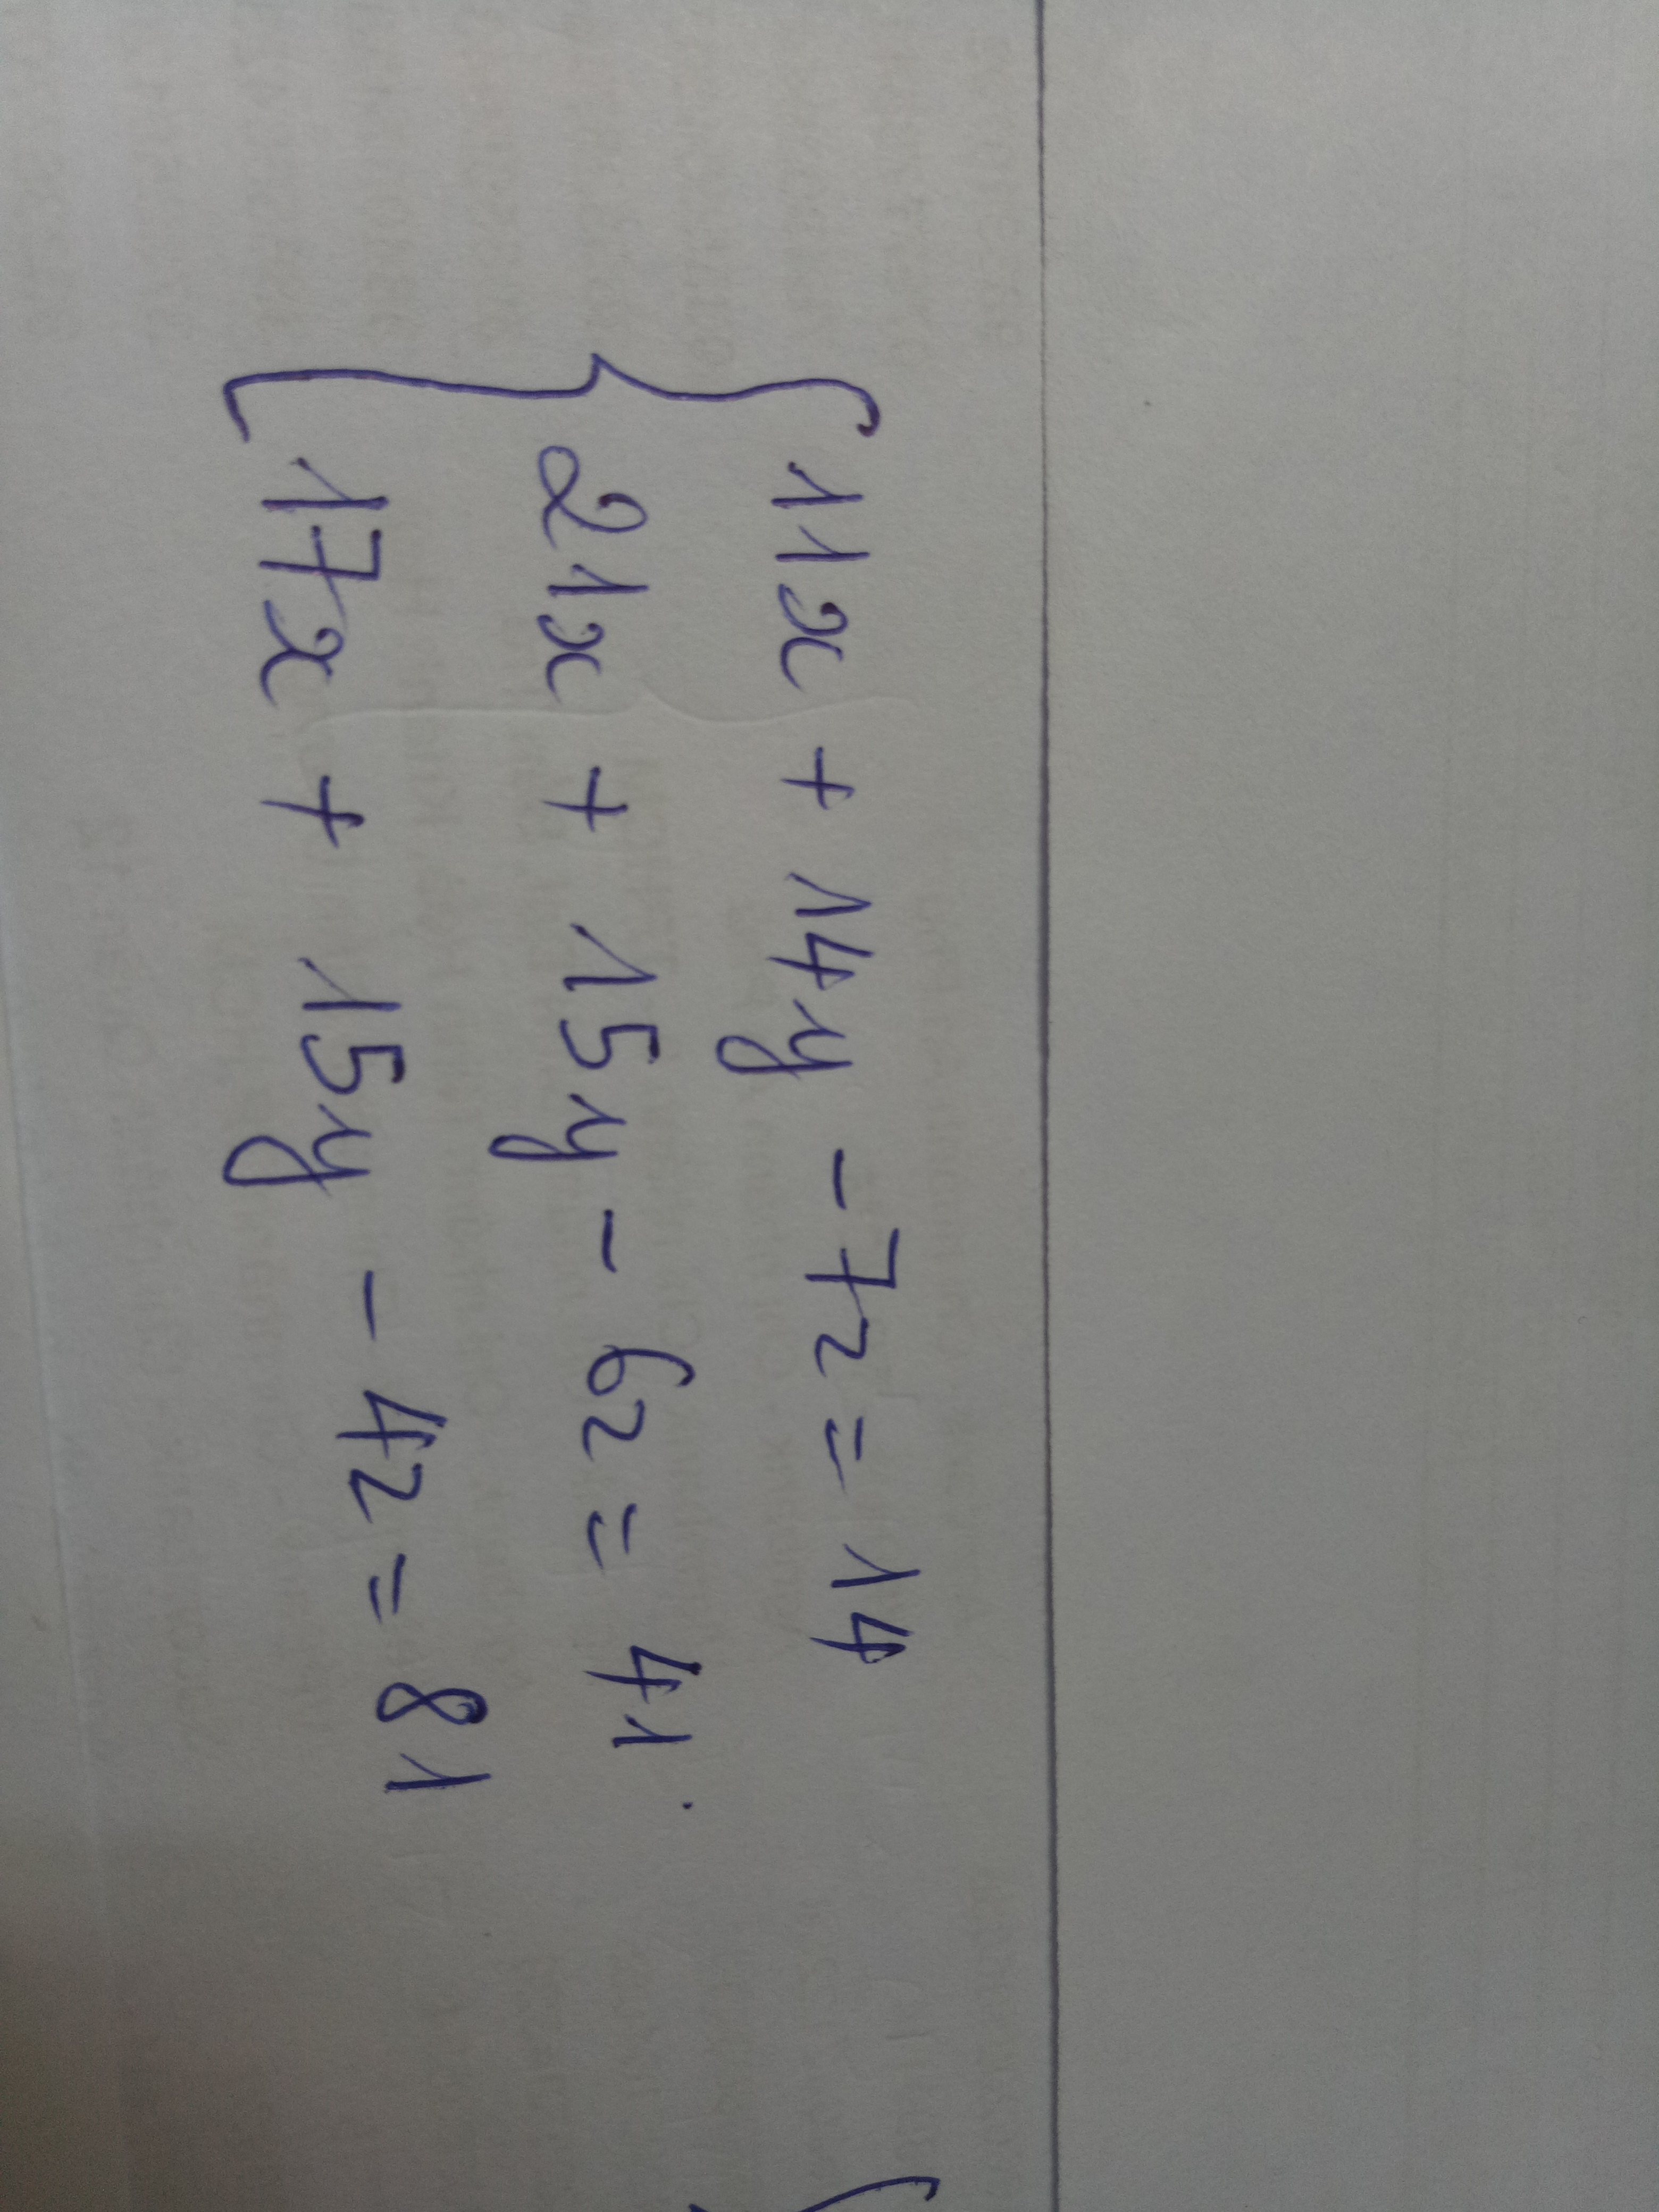 11x + 14y - 7z = 14
21x + 15y - 6z = 41
17x + 15y - 4z = 81